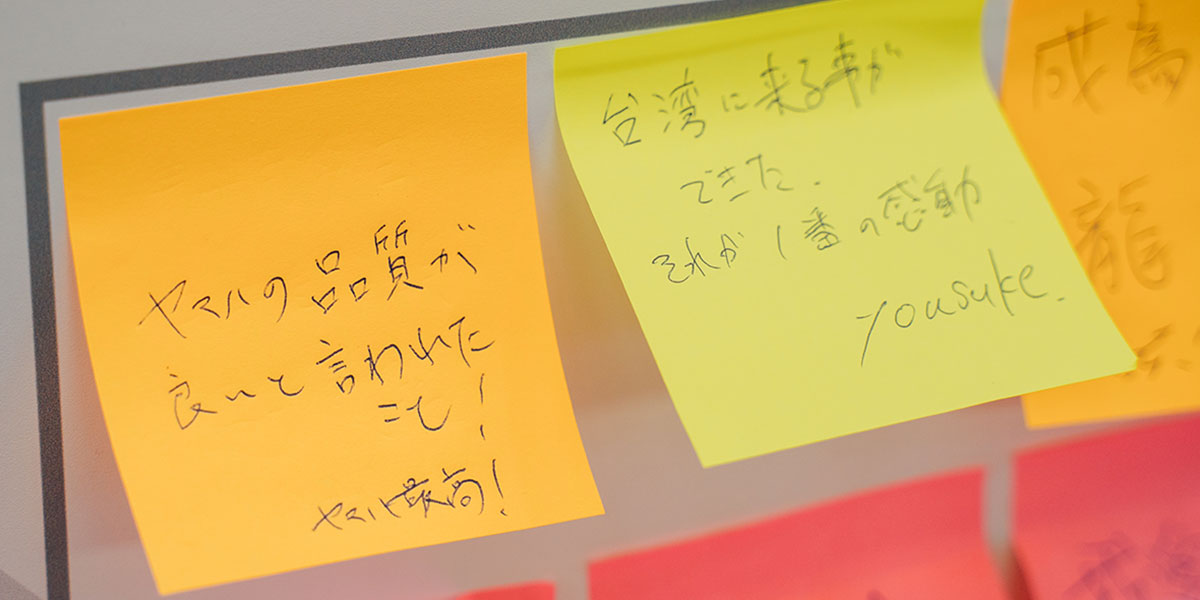 ヤマハの品質が
良いと言われた
こと!
ヤマハ最高!
台湾に来る事が
できた.
それが1番の感動
yousuke.
成為
龍